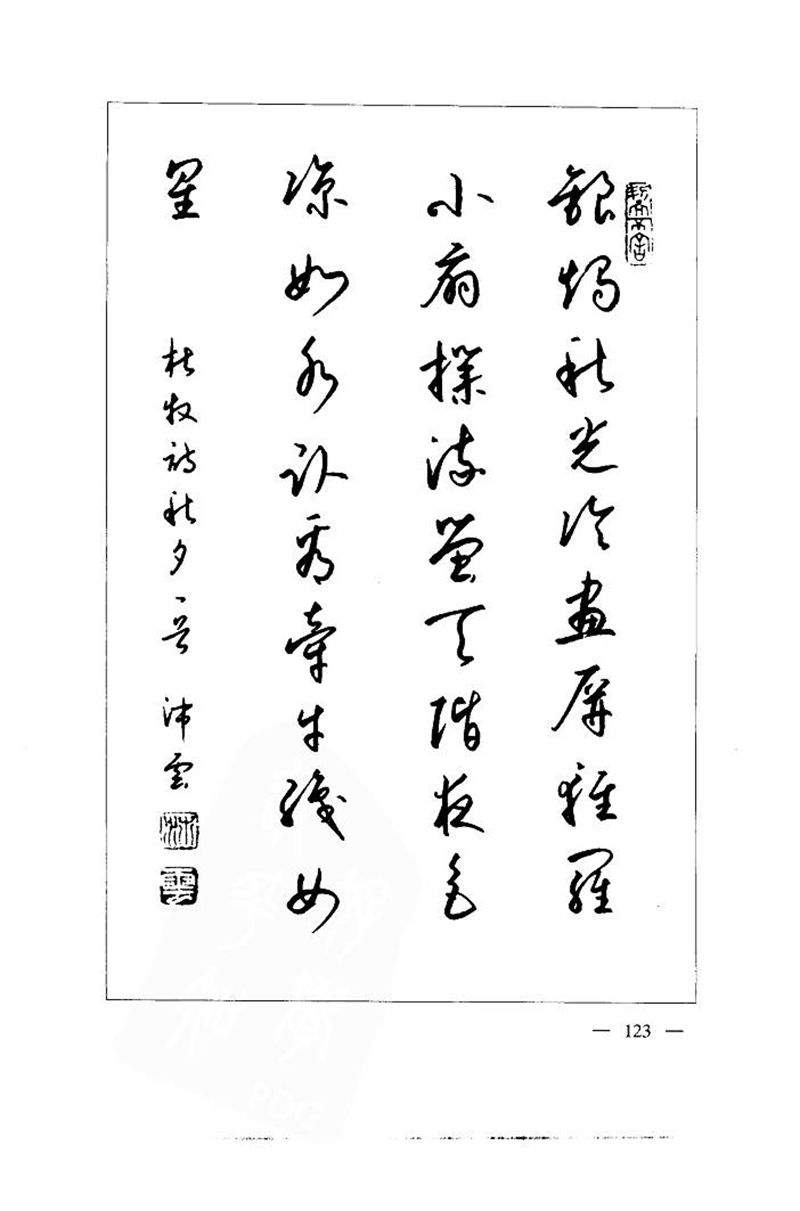 銀燭秋光冷畫屏輕羅
小扇撲流螢天階夜色
涼如水臥看牽牛織女
星
杜牧詩秋夕一首 沛雲
雲
— 123 —